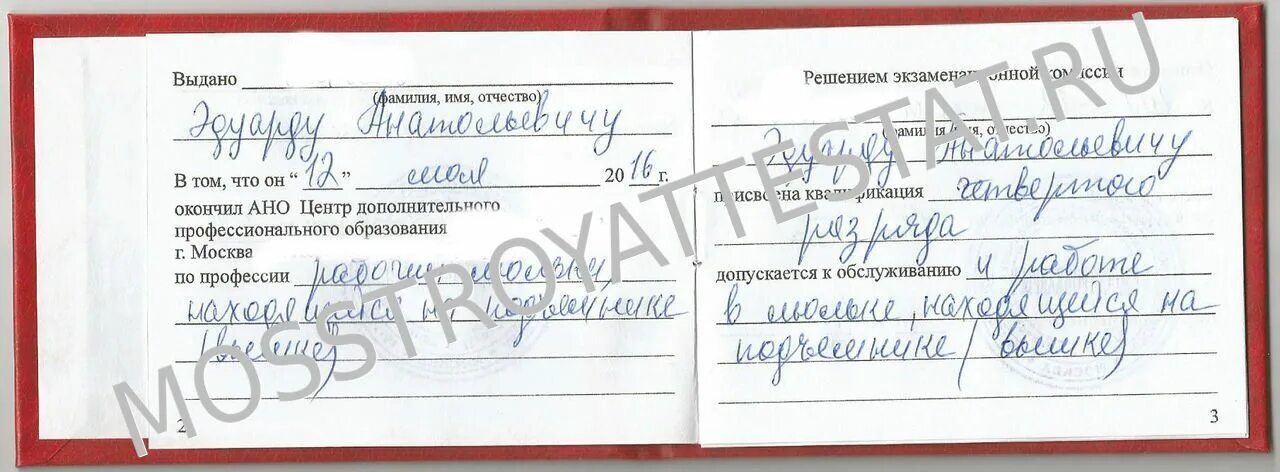 Выдано
(фамилия, имя, отчество)
Эдуарду Анатольевичу
В том, что он “12” июля 2016 г.
окончил АНО Центр дополнительного
профессионального образования
г. Москва
по профессии рабочий люльки,
находящийся на подъемнике
(вышке)
2
Решением экзаменационной комиссии
(фамилия, имя, отчество)
Эдуарду Анатольевичу
присвоена квалификация четвертого
разряда
допускается к обслуживанию и работе
в люльке, находящейся на
подъемнике (вышке)
3
MOSSTROYATTESTAT.RU